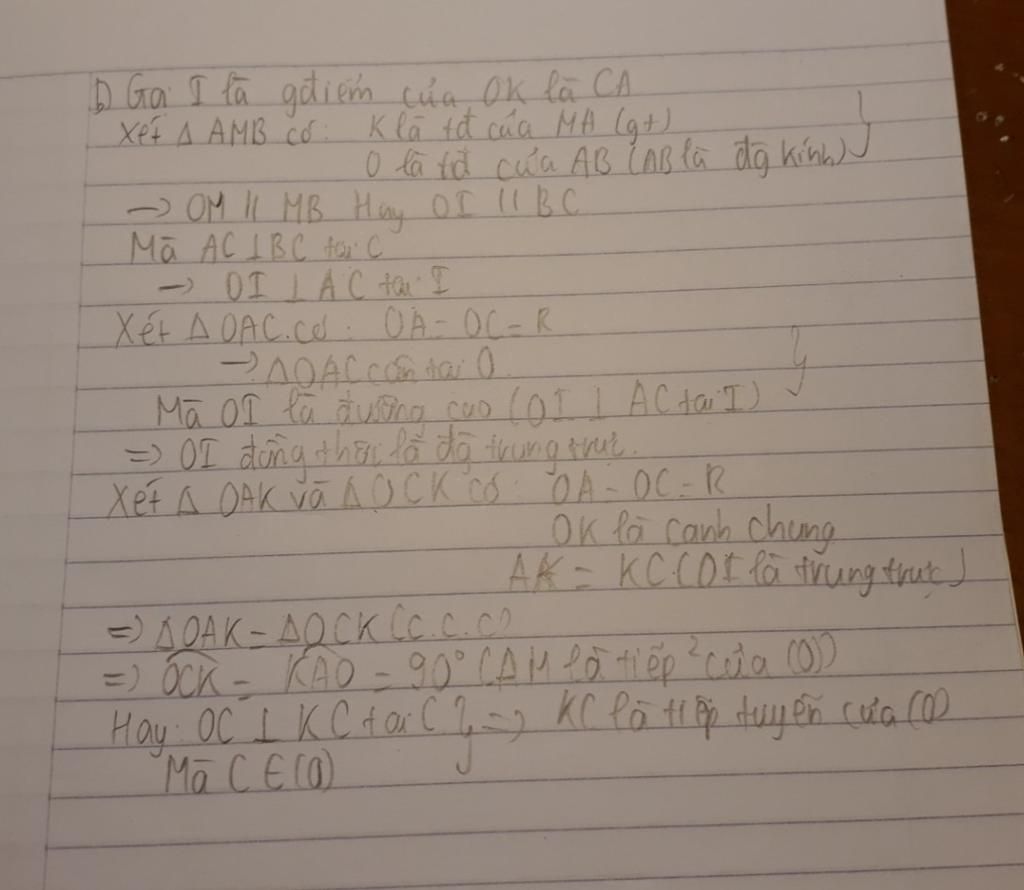 b) Gọi I là gđiểm của OK là CA
Xét Δ AMB có: K là tđ của MA (gt)
O là tđ của AB (AB là đg kính)
→ OM // MB Hay OI // BC
Mà AC ⊥ BC tại C
→ OI ⊥ AC tại I
Xét Δ OAC.có: OA = OC = R
→ Δ OAC cân tại O.
Mà OI là đường cao (OI ⊥ AC tại I)
=> OI đồng thời là đg trung trực.
Xét Δ OAK và Δ OCK có: OA = OC = R
OK là cạnh chung
AK = KC (OI là trung trực)
=> ΔOAK = ΔOCK (c.c.c)
=> OCK = KAO = 90° (AM là tiếp² của (O))
Hay: OC ⊥ KC tại C } => KC là tiếp tuyến của (O)
Mà C ∈ (O)